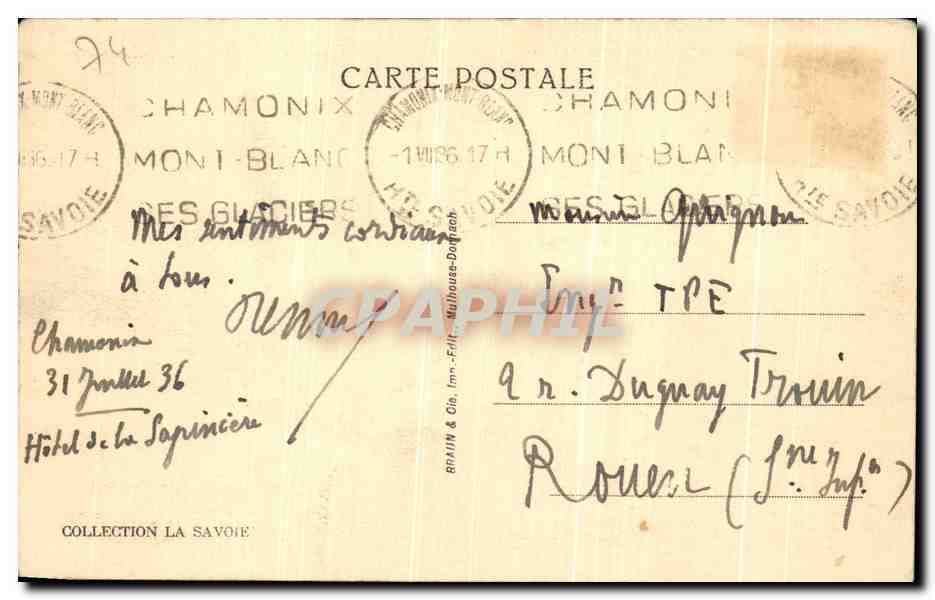 74
CARTE POSTALE
CHAMONIX
MONT-BLANC
SES GLACIERS
CHAMONIX MONT-BLANC
-1 VIII 36. 17 H
HTE SAVOIE
CHAMONI
MONT-BLAN
SES GLACIERS
X MONT-BLANC
36. 17 H
SAVOIE
TE SAVOIE
Mes sentiments cordiaux
à tous.
Chamonix
31 Juillet 36
Hôtel de la Sapinière
COLLECTION LA SAVOIE
BRAUN & Cie, Imp.-Edit., Mulhouse-Dornach
CPAPHIL
Monsieur
Engr TPE
9 r. Duguay Trouin
Rouen (Sne Infre)